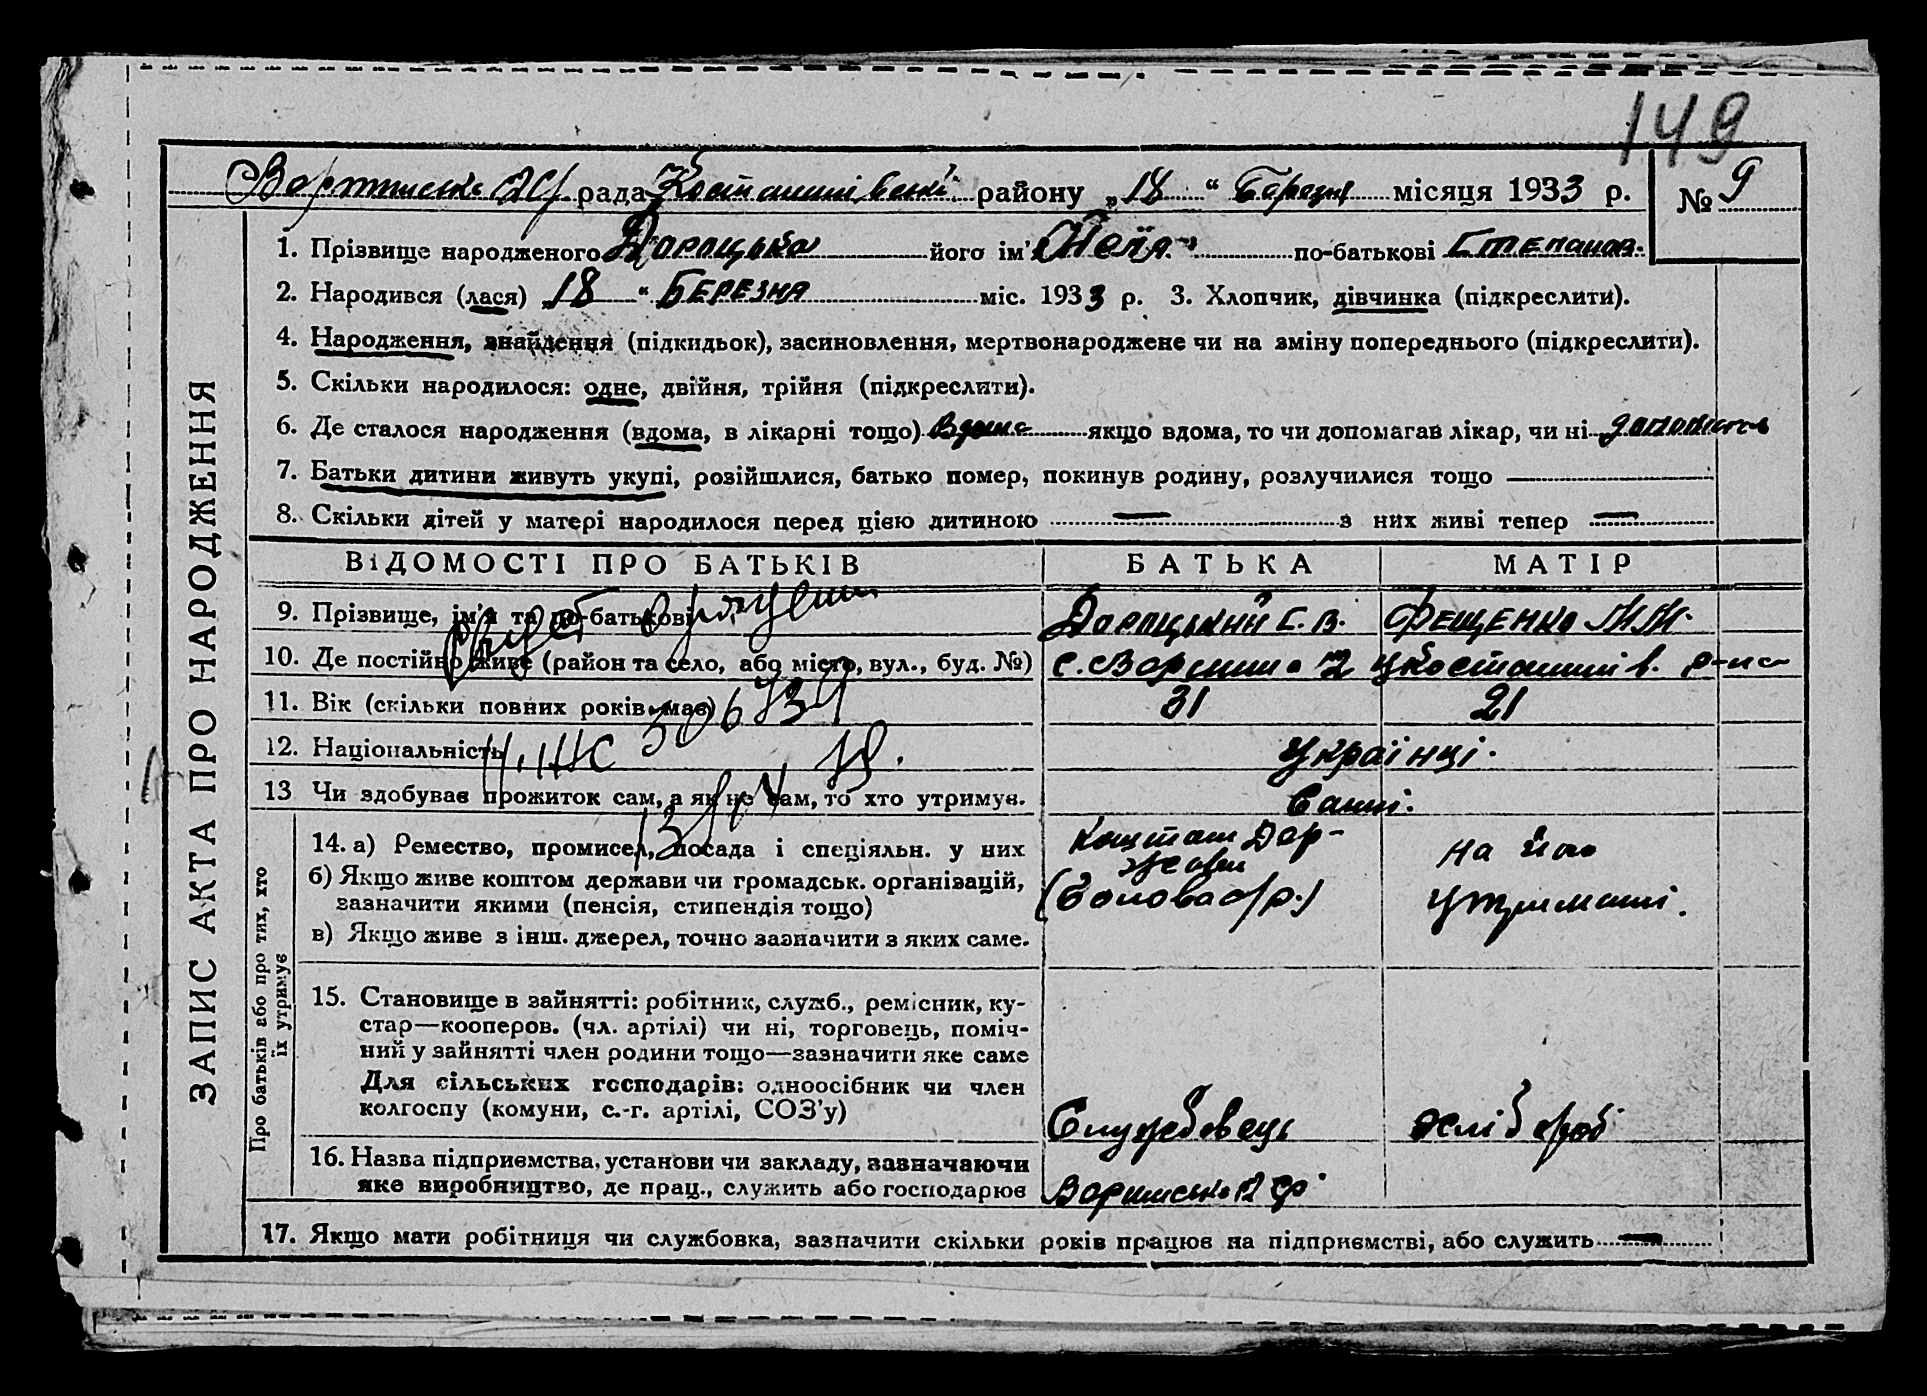 149
рада району „18“ Березня місяця 1933 р. № 9
1. Прізвище народженого Дорошцька його ім'я по-батькові Степанов.
2. Народився (лася) „18“ БЕРЕЗНЯ міс. 1933 р. 3. Хлопчик, дівчинка (підкреслити).
4. Народження, знайдення (підкидьок), засиновлення, мертвонароджене чи на зміну попереднього (підкреслити).
5. Скільки народилося: одне, двійня, трійня (підкреслити).
6. Де сталося народження (вдома, в лікарні тощо) вдома якщо вдома, то чи допомагав лікар, чи ні
7. Батьки дитини живуть укупі, розійшлися, батько помер, покинув родину, розлучилися тощо —
8. Скільки дітей у матері народилося перед цією дитиною — з них живі тепер —
ВІДОМОСТІ ПРО БАТЬКІВ БАТЬКА МАТІР
9. Прізвище, ім'я та по-батькові С. В. ФЕЩЕНКО М. М.
10. Де постійно живе (район та село, або місто, вул., буд. №) с.
11. Вік (скільки повних років має) 31 21
12. Національність Українці.
13. Чи здобував прожиток сам, а як не сам, то хто утримув.
14. а) Ремество, промисел, посада і спеціяльн. у них
б) Якщо живе коштом держави чи громадськ. організацій,
зазначити якими (пенсія, стипендія тощо)
в) Якщо живе з інш. джерел, точно зазначити з яких саме.
Коштом Дер-
жави
(Голова с/р.)
на його
утриманні.
15. Становище в зайнятті: робітник, служб., ремісник, ку-
стар—кооперов. (чл. артілі) чи ні, торговець, поміч-
ний у зайнятті член родини тощо—зазначити яке саме
Для сільських господарів: одноосібник чи член
колгоспу (комуни, с.-г. артілі, СОЗ'у)
Службовець хлібороб
16. Назва підприємства, установи чи закладу, зазначаючи
яке виробництво, де прац., служить або господарює
17. Якщо мати робітниця чи службовка, зазначити скільки років працює на підприємстві, або служить —
ЗАПИС АКТА ПРО НАРОДЖЕННЯ
Про батьків або про тих, хто
їх утримує